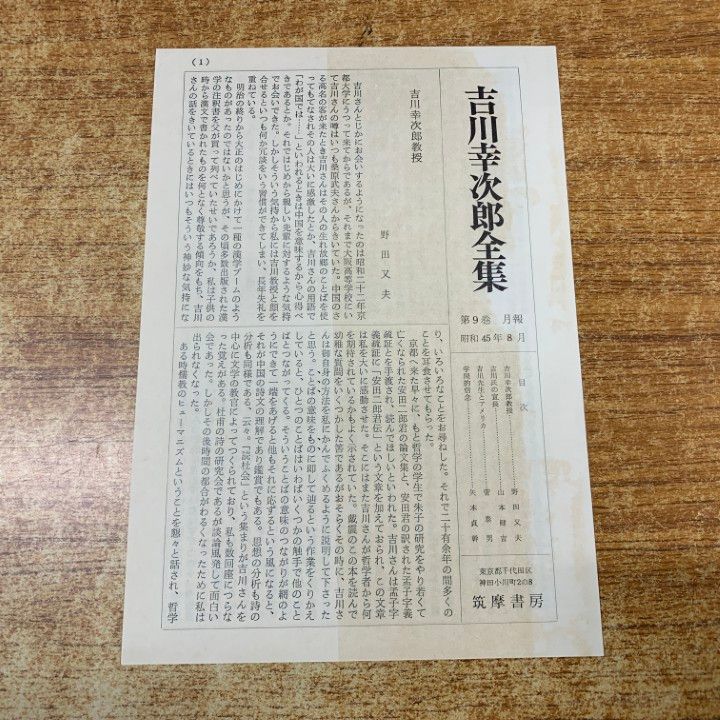 (1)
吉川幸次郎全集
第9巻 月報
昭和45年8月
目次
吉川幸次郎教授……野田又夫
吉川氏の宣長……山本健吉
吉川先生とアメリカ……菅泰男
学問的信念……矢本貞幹
東京都千代田区
神田小川町2の8
筑摩書房
吉川幸次郎教授
野田又夫
吉川さんとじかにお会いするようになったのは昭和二十二年京
都大学にうつって来てからであるが、それまで大阪高等学校にい
て吉川さんの噂はいつも桑原武夫さんからきいていた。中国のさ
る高名の客が来たとき吉川さんはその人の生れ故郷のことばを使
ってもてなされその人は大いに感激したとか、吉川さんの用語で
「わが国では……」といわれるときは中国を意味するから心得べ
きであるとか。それではじめから親しい先輩に対するような気持
でお会いできた。しかしそういう気持から私には吉川教授と顔を
合せるといつも何か冗談をいう習慣ができてしまい、長年失礼を
重ねている。
明治の終りから大正のはじめにかけて一種の漢学ブームのよう
なものがあったのではないかと思うが、その頃多数出版された漢
学の注釈書を父が買って列べていたせいであろうか、私は子供の
時から漢文で書かれたものを何となく尊敬する傾向をもち、吉川
さんの話をきいているときにはいつもそういう神妙な気持にな
り、いろいろなことをお尋ねした。それで二十有余年の間多くの
ことを耳食させてもらった。
京都へ来た早々に、もと哲学の学生で朱子の研究をやり若くて
亡くなられた安田二郎君の論文集と、安田君の訳された孟子字義
疏証とを手渡され、読んでほしいといわれた。吉川さんは孟子字
義疏証に「安田二郎君伝」という文章を加えておられ、この文章
は私を大いに感動させた。そこにはまた吉川さんが哲学者から何
を期待されているかもよく示されていた。戴震のこの本を読んで
幼稚な質問をいくつかした答であるがおそらくその時に、吉川さ
んは御自身の方法を私にかんでふくめるように説明して下さった
と思う。ことばの意味をものに即して辿るという作業をくりかえ
していると、ひとつのことばはいわばいくつかの触手で他のこと
ばとつながってくる。そういうことばの意味のつながりが網のよ
うにできて一端をあげると他もそれに応ずるという風になると、
それが中国の詩文の理解であり鑑賞でもある。思想の分析も詩の
分析も同様である、云々。「読杜会」という集まりが吉川さんを
中心に文学の教官によってつくられており、私も数回座につらな
った覚えがある。杜甫の詩の研究会であるが談論風発して面白い
会であった。しかしその後時間の都合がわるくなったために私は
出られなくなった。
ある時儒教のヒューマニズムということを懇々と話され、哲学